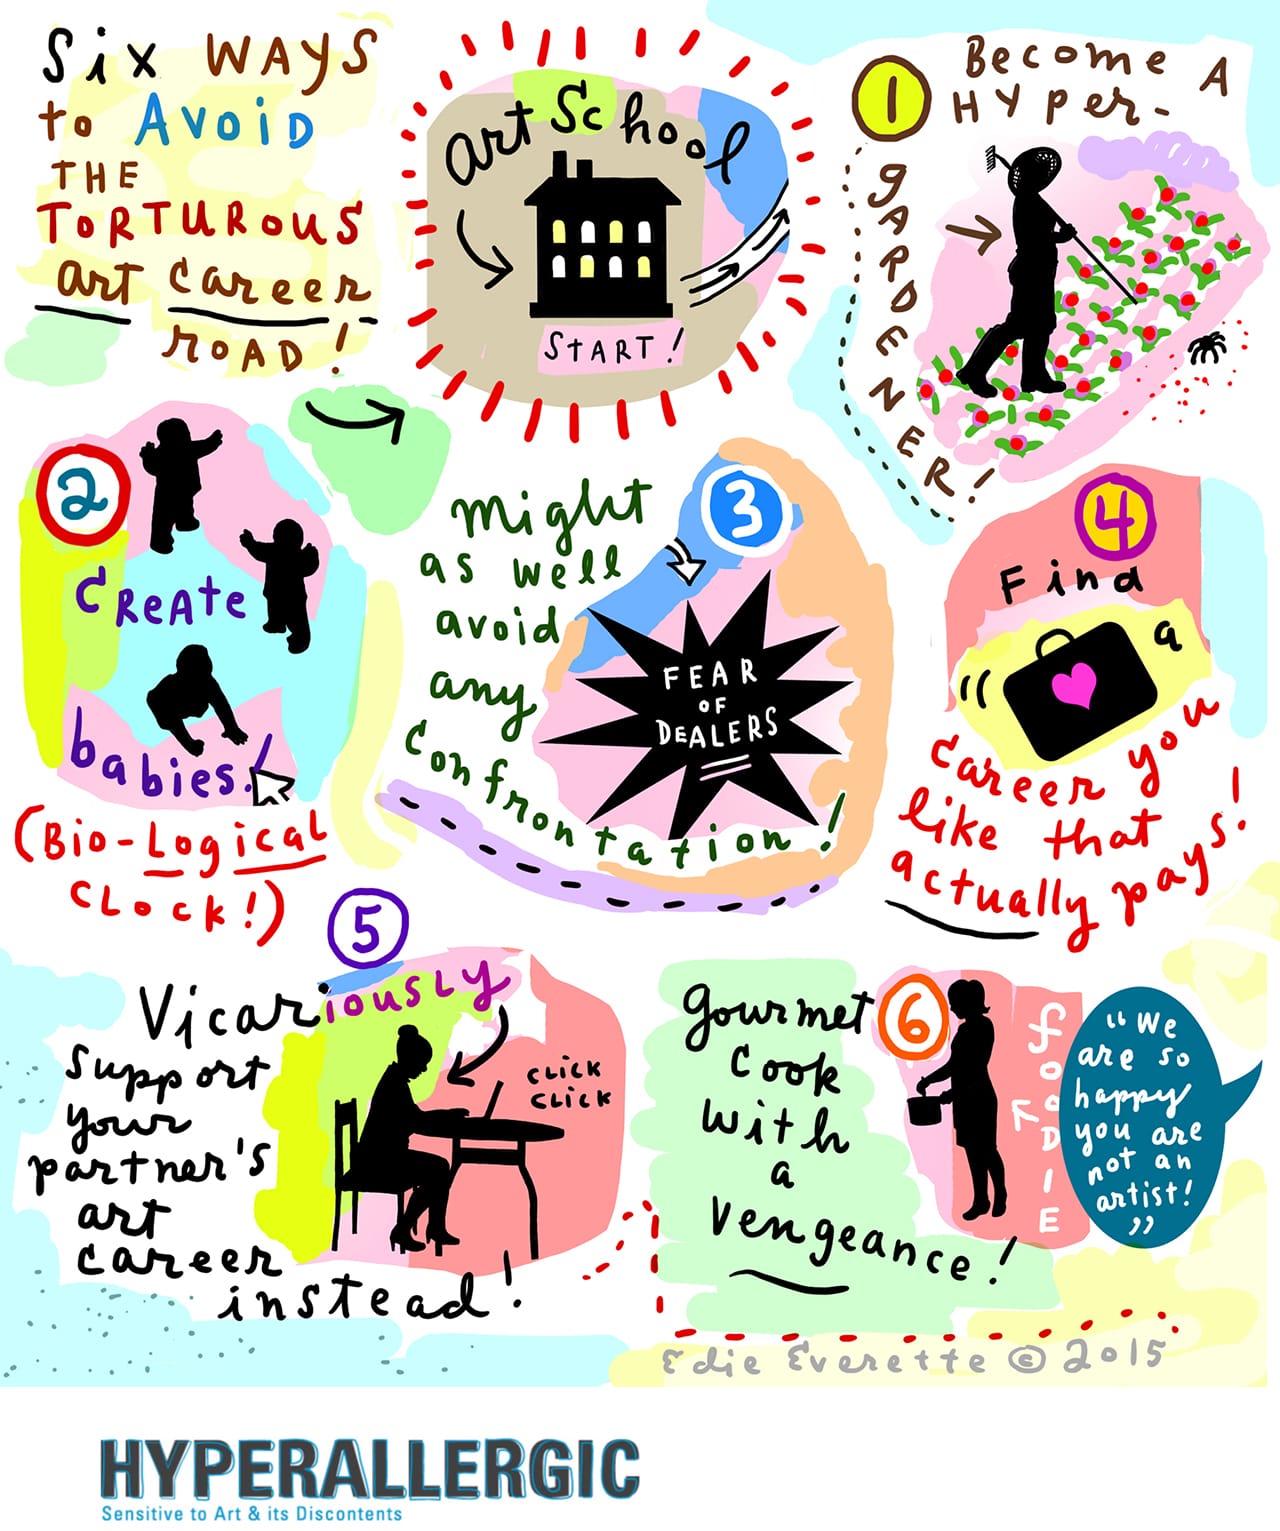 Six WAYS
to AVOiD
THE
TORTUROUS
art career
ROAD!
art School
START!
1
Become A
HYper-
gARDENER!
2
CReAte
babies!
(Bio-Logical
CLock!)
3
might
as well
avoid
any
confrontation!
FEAR
OF
DEALERS
4
Find
a
career you
like that
actually pays!
5
Vicariously
support
your
partner's
art
career
instead!
CLICK
CLICK
6
gourmet
cook
with
a
vengeance!
fooDIE
“We
are so
happy
you are
not an
artist!
”
Edie Everette © 2015
HYPERALLERGIC
Sensitive to Art & its Discontents